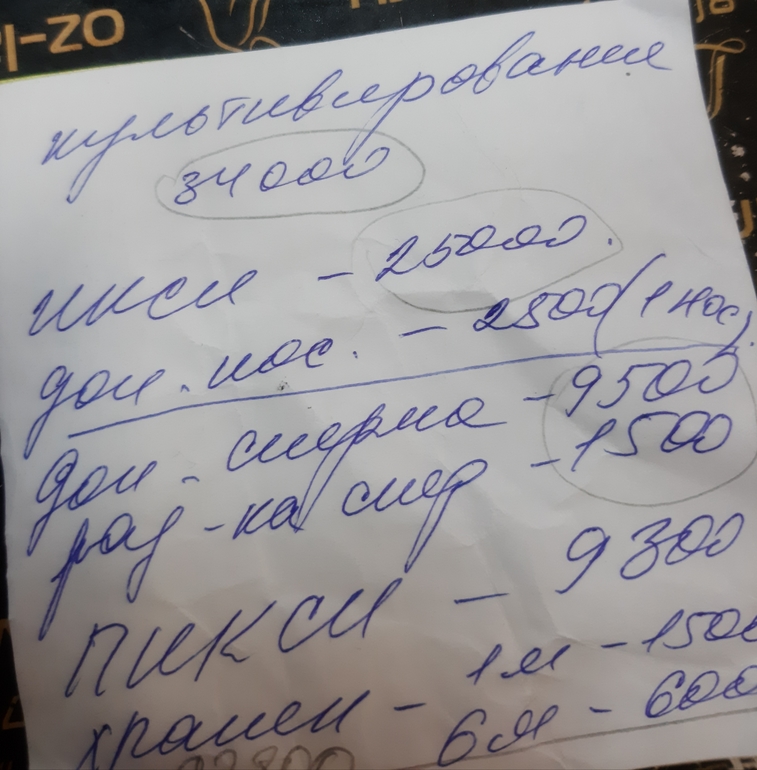 I-ZO
культивирование
34000
ИКСИ - 25000.
доп. нос. - 2500 (1 нос).
дон - сперма - 9500
раз-ка спер - 1500
ПИКСИ - 9300
хранен - 1м - 1500
6м - 600